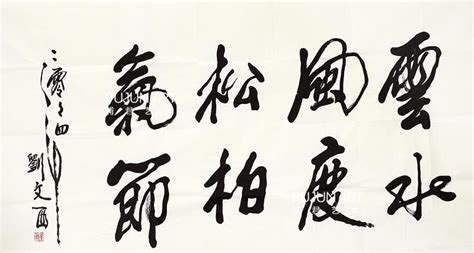 雲水
風度
松柏
氣節
二零々四年
劉文西